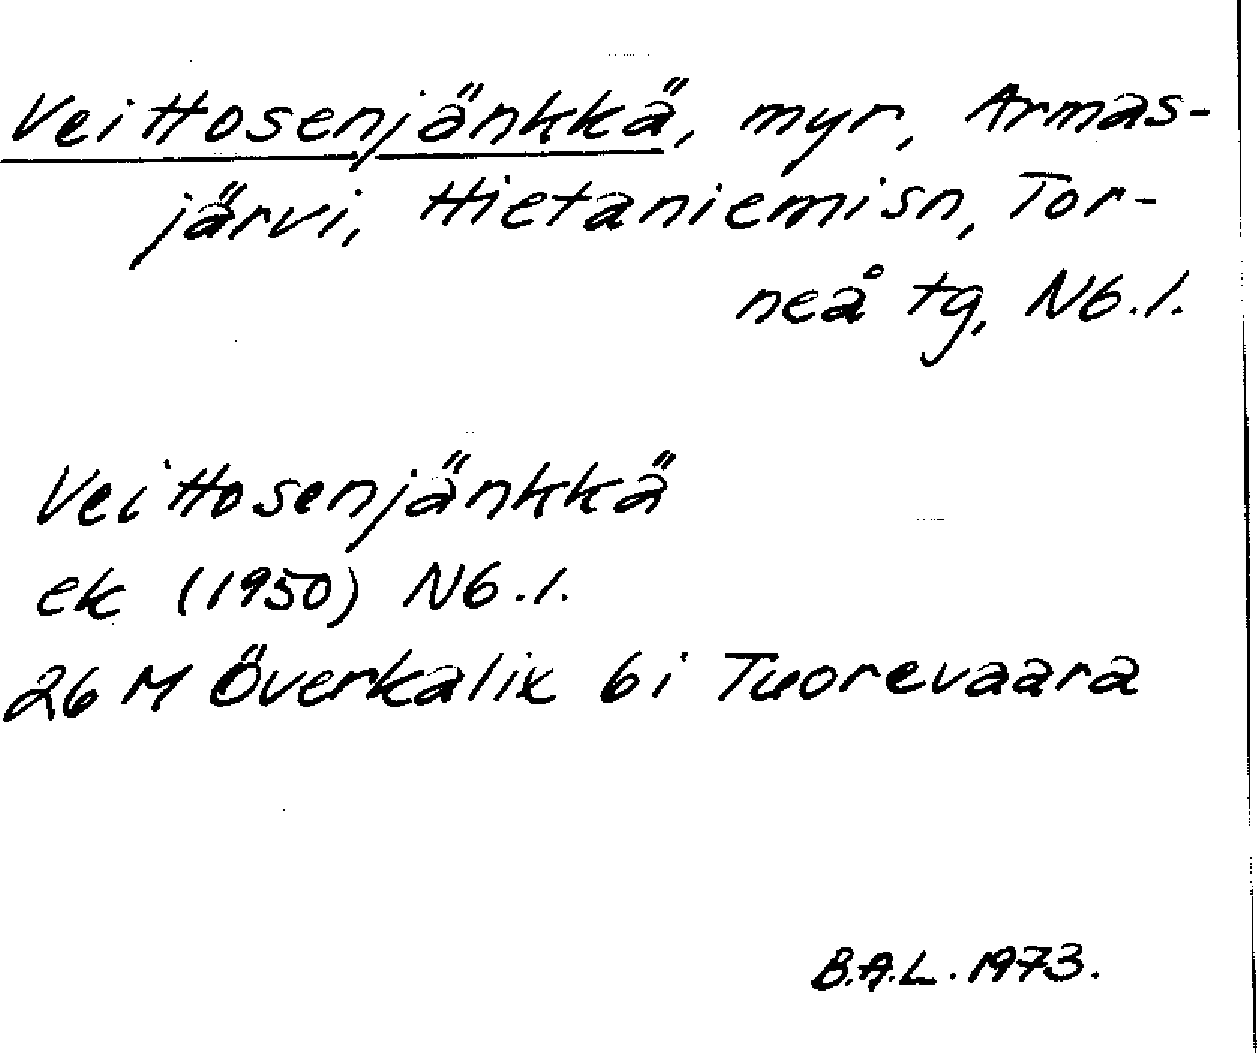 Veittosenjänkkä, myr, Armas-
järvi, Hietaniemi sn, Tor-
neå tg, Nb.l.
Veittosenjänkkä
ek (1950) Nb.l.
26 M Överkalix 6i Tuorevaara
B.A.L. 1973.